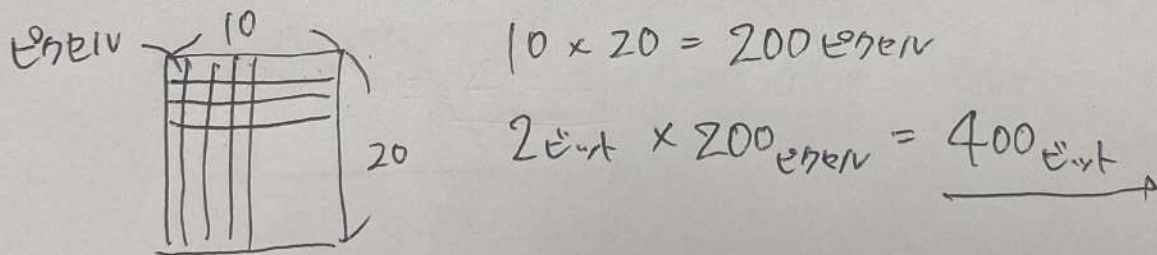 ピクセル 10
20
10 × 20 = 200ピクセル
2ビット × 200ピクセル = 400ビット